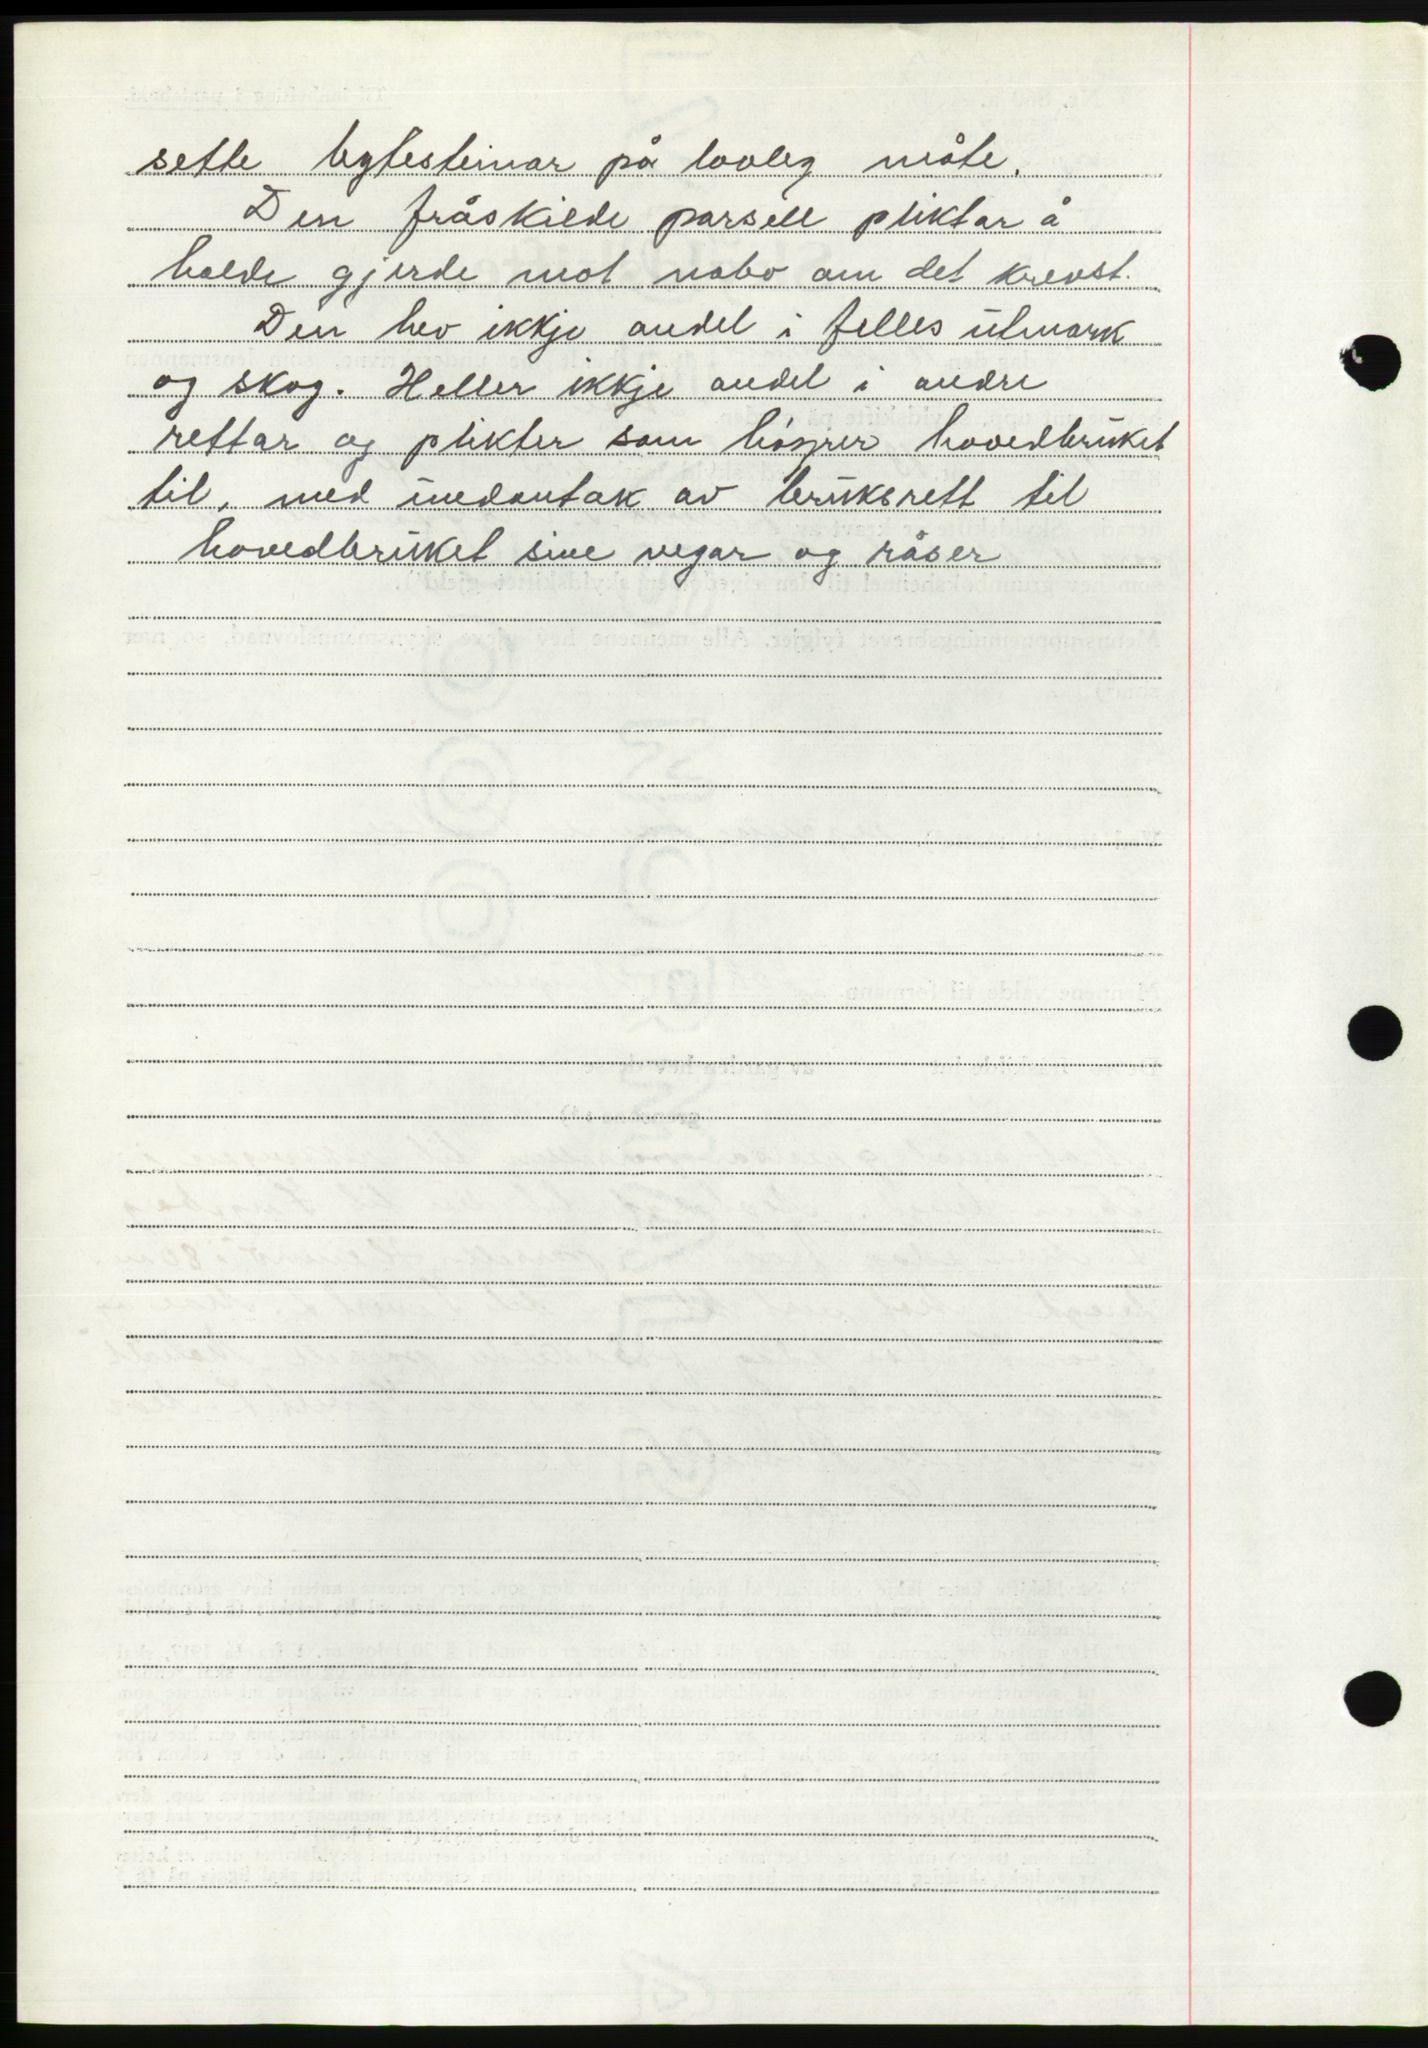 sette bytesteinar på lovleg måte.
Den fråskilde parsell pliktar å
halde gjerde mot nabo om det krevst.
Den hev ikkje andel i felles utmark
og skog. Heller ikkje andel i andre
rettar og plikter som høyrer hovedbruket
til, med undantak av bruksrett til
hovedbruket sine vegar og råser